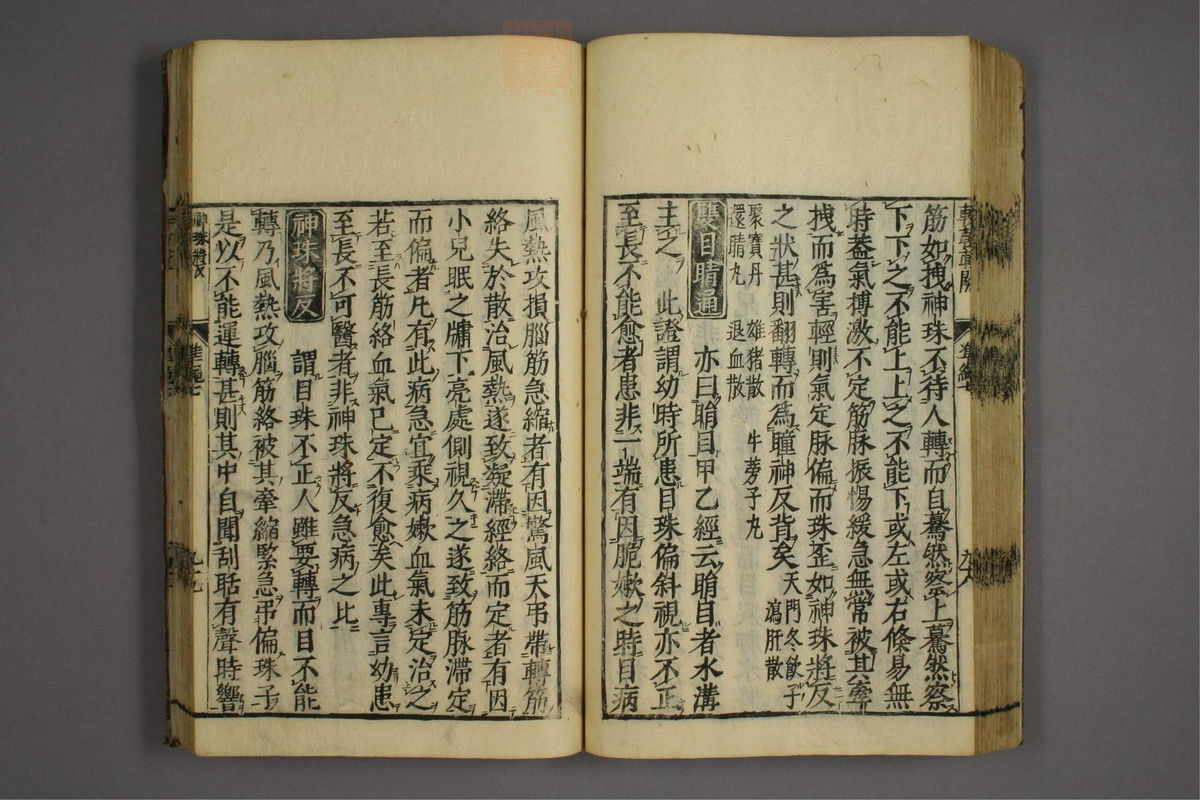 筋如拽神珠不待人轉而自驀然察上驀然察
下下之不能上上之不能下或左或右倐易無
時蓋氣搏激不定筋脉振惕緩急無常被其牽
拽而為害輕則氣定脉偏而珠歪如神珠將反
之狀甚則翻轉而為瞳神反背矣 天門冬飲子 瀉肝散
聚寶丹 雄猪散 牛蒡子丸
還睛丸 退血散
雙目睛通 亦曰睊目甲乙經云睊目者水溝
主之 此證謂幼時所患目珠偏斜視亦不正
至長不能愈者患非一端有因脆嫰之時目病
風熱攻損腦筋急縮者有因驚風天弔帶轉筋
絡失於散治風熱遂致凝滯經絡而定者有因
小兒眠之牖下亮處側視久之遂致筋脉滯定
而偏者凡有此病急宜乘病嫰血氣未定治之
若至長筋絡血氣已定不復愈矣此專言幼患
至長不可醫者非神珠將反急病之比
神珠將反 謂目珠不正人雖要轉而目不能
轉乃風熱攻腦筋絡被其牽縮緊急弔偏珠子
是以不能運轉甚則其中自聞刮聒有聲時響